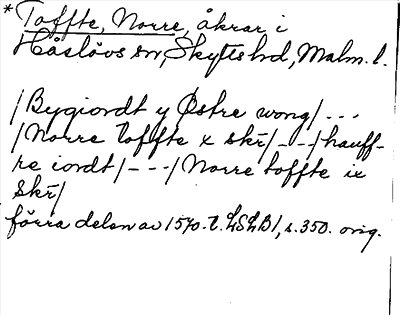 * Toffte, Norre, åkrar i
Håslövs sn, Skytts hd, Malm. l.
/Bygiordt y Østre wong/ ...
/Norre toffte x skr̄/ - - - /hauff-
re iordt/ - - - /Norre toffte ix
skr̄/
förra delen av 1570. t. LSLB 1, s. 350. orig.